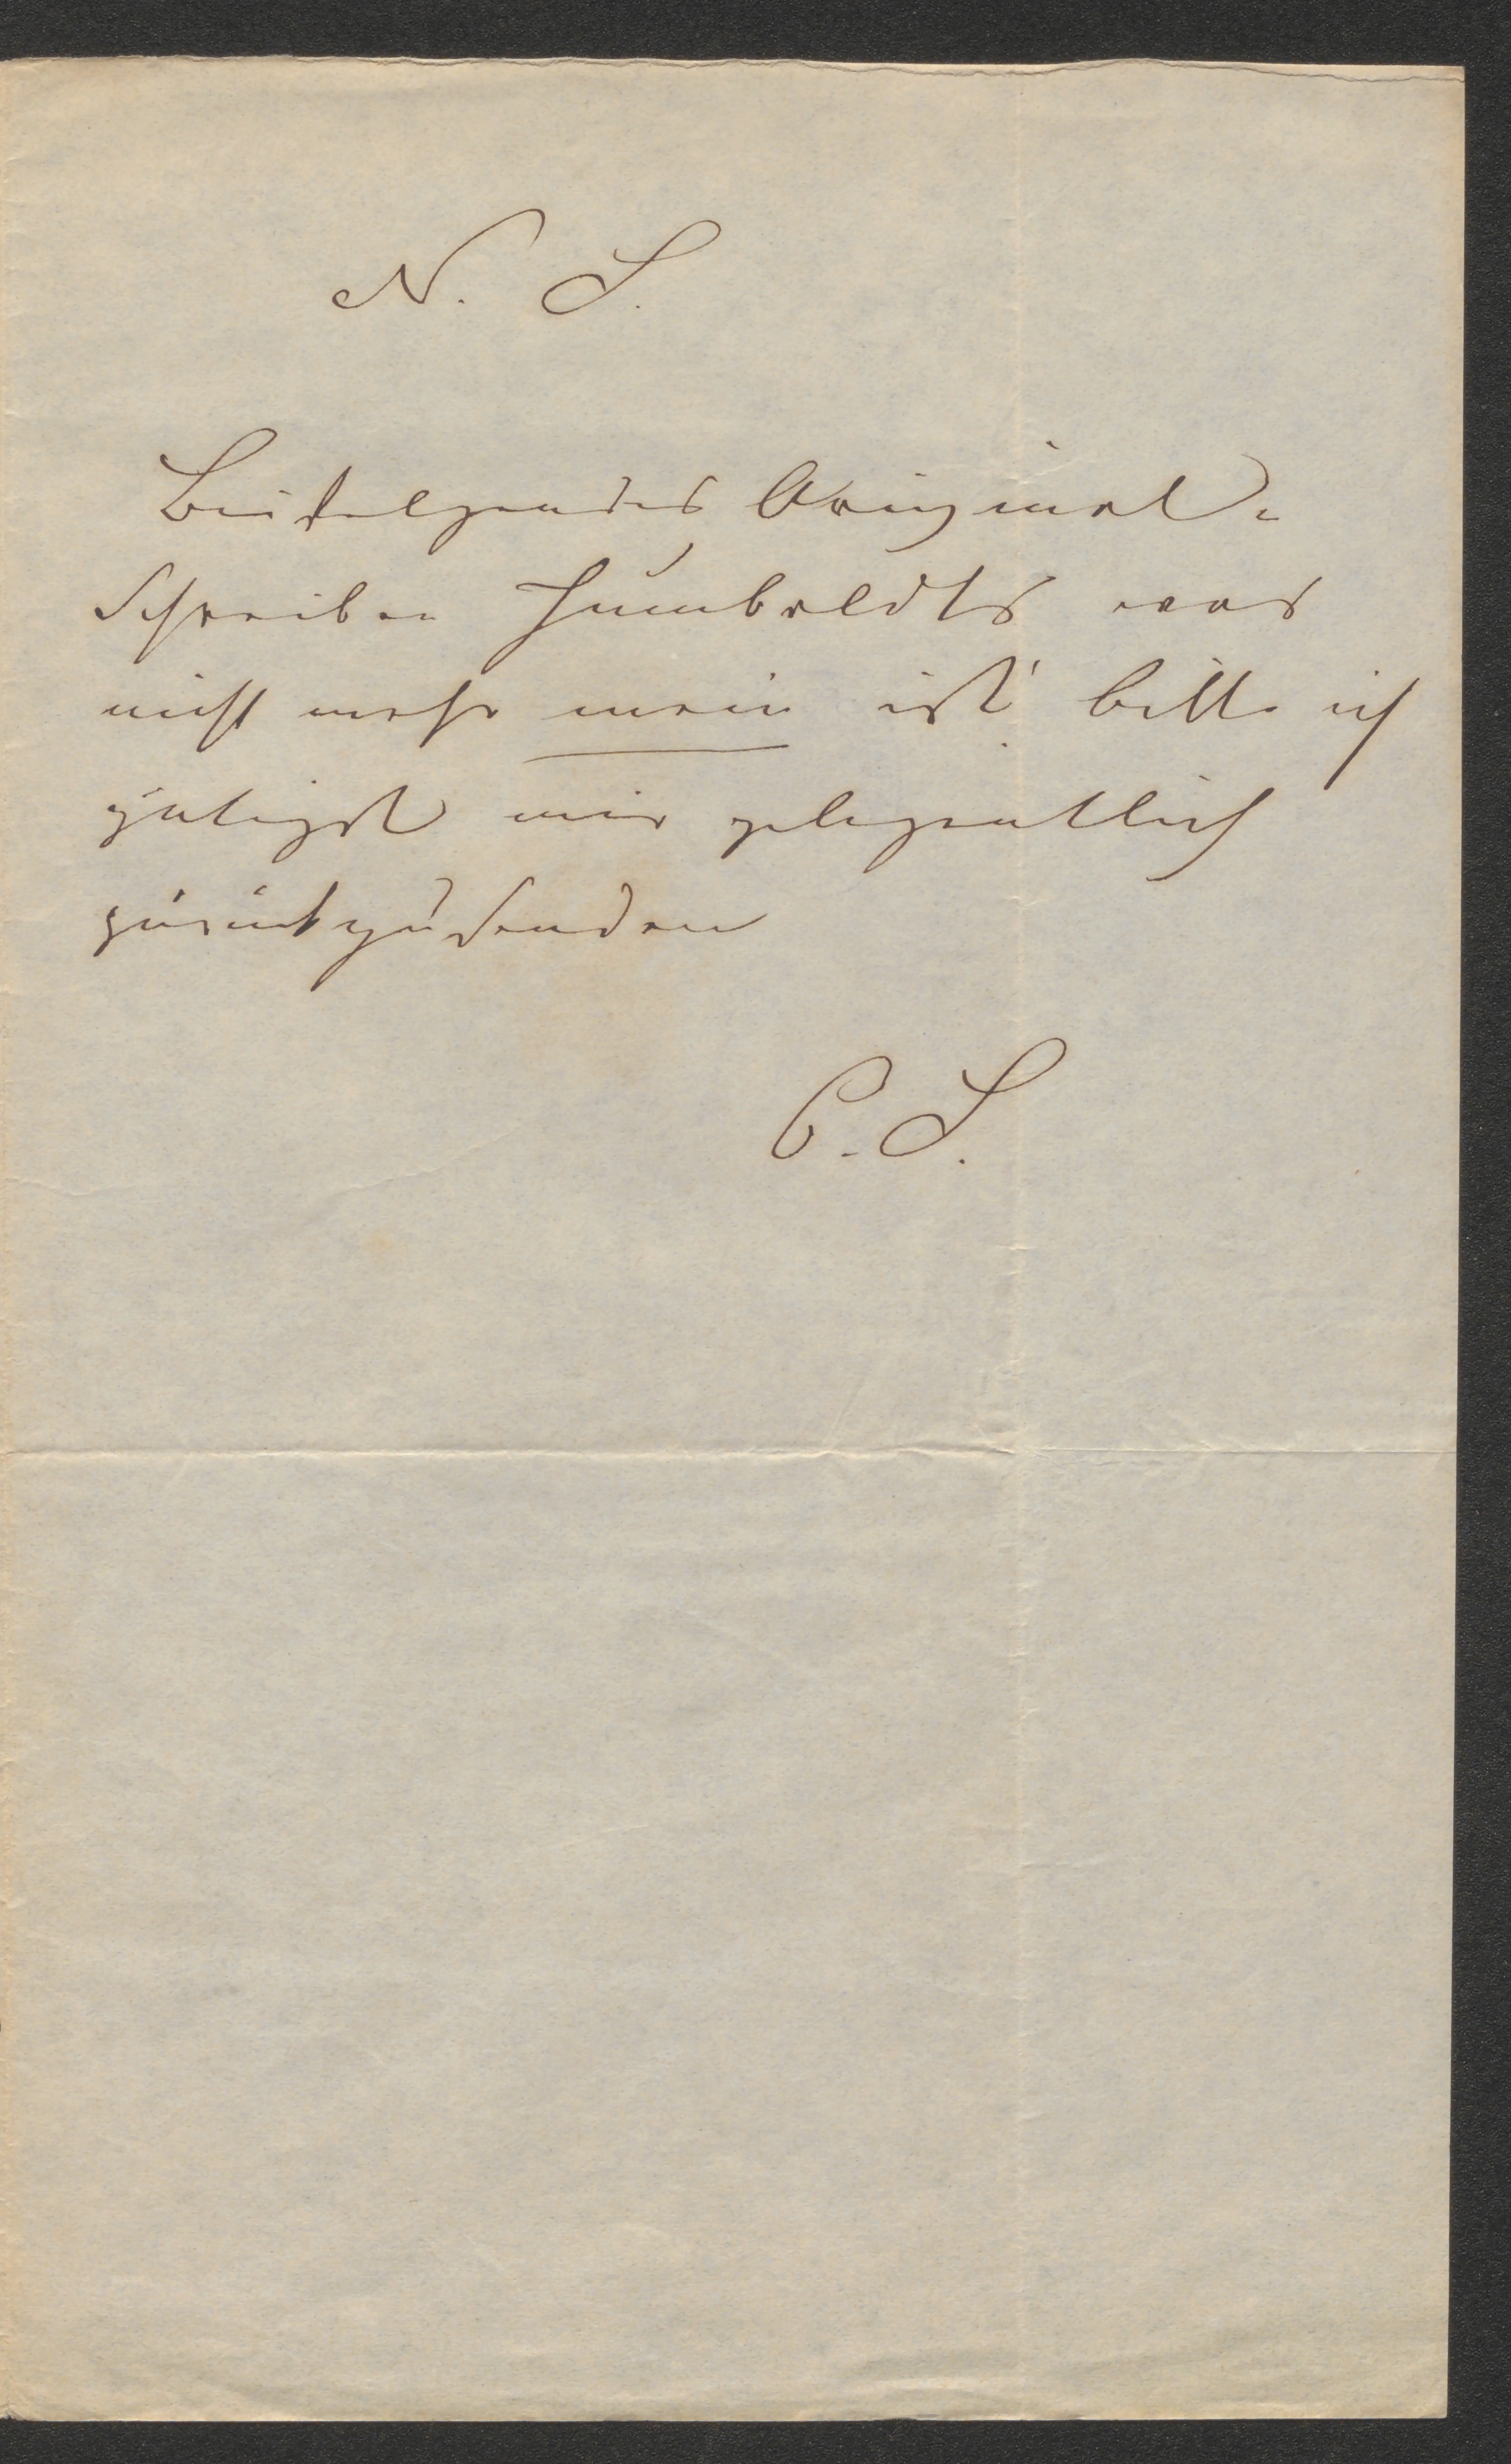 N. S.
Beifolgendes Original-
Schreiben Humboldts was
nicht mehr mein ist bitte ich
gütigst mir gelegentlich
zurückzusenden
C. S.